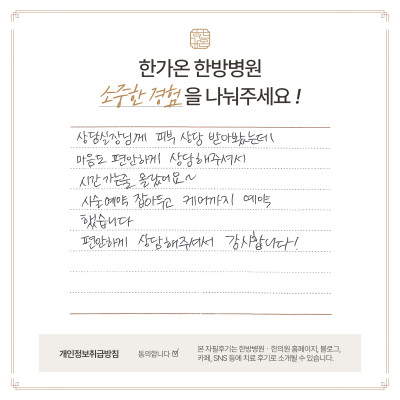 한가온 한방병원
소중한 경험을 나눠주세요!
상담실장님께 피부 상담 받아봤는데
마음도 편안하게 상담해주셔서
시간가는줄 몰랐어요~
시술예약 잡아두고 케어까지 예약
했습니다
편안하게 상담해주셔서 감사합니다!
개인정보취급방침
동의합니다
본 자필후기는 한방병원 · 한의원 홈페이지, 블로그,
카페, SNS 등에 치료 후기로 소개될 수 있습니다.